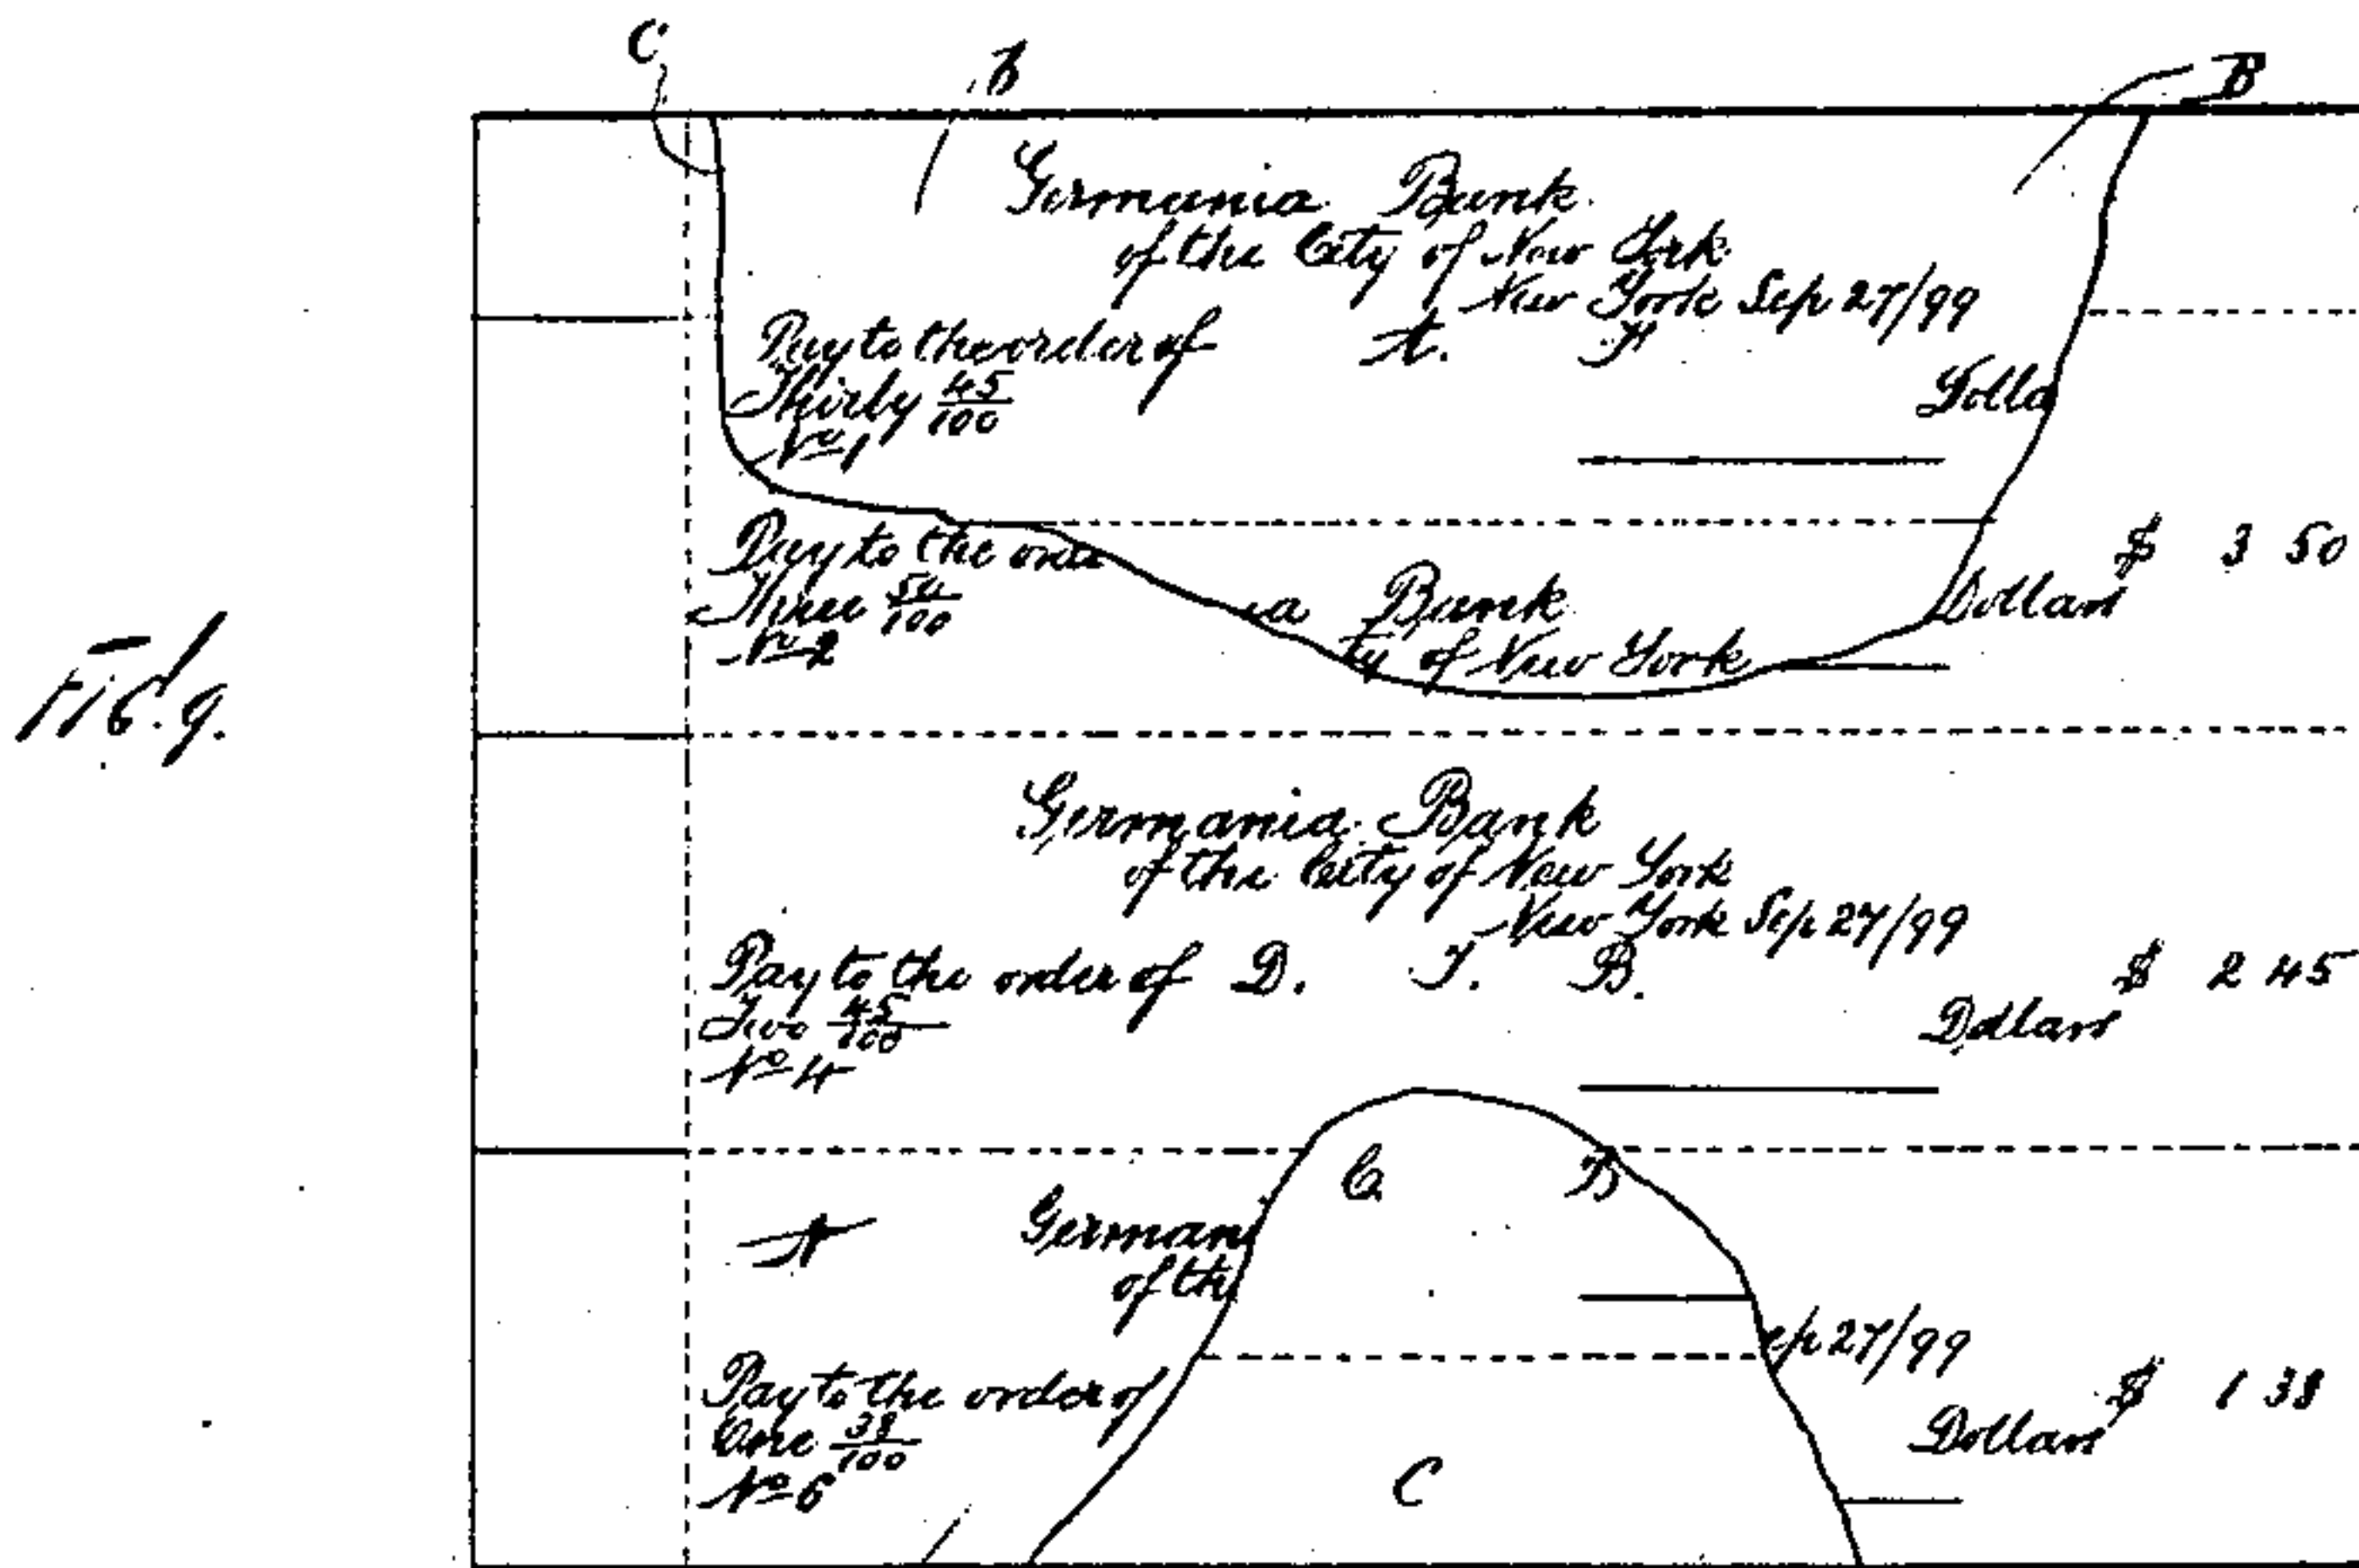 C b B
Germania Bank
of the City of New York
New York Sep 27/99
Pay to the order of A. H
Thirty 45/100 Dolla
No 1
Pay to the orde $ 3 50
Three 50/100 ia Bank Dollars
No 2 ty of New York
Fig. 9.
Germania Bank
of the City of New York
New York Sep 27/99
Pay to the order of D. T. B. $ 2 45
Two 45/100 Dollars
No 4
C
A German
of the
ep 27/99
Pay to the order of $ 1 38
One 38/100 Dollars
No 6 C